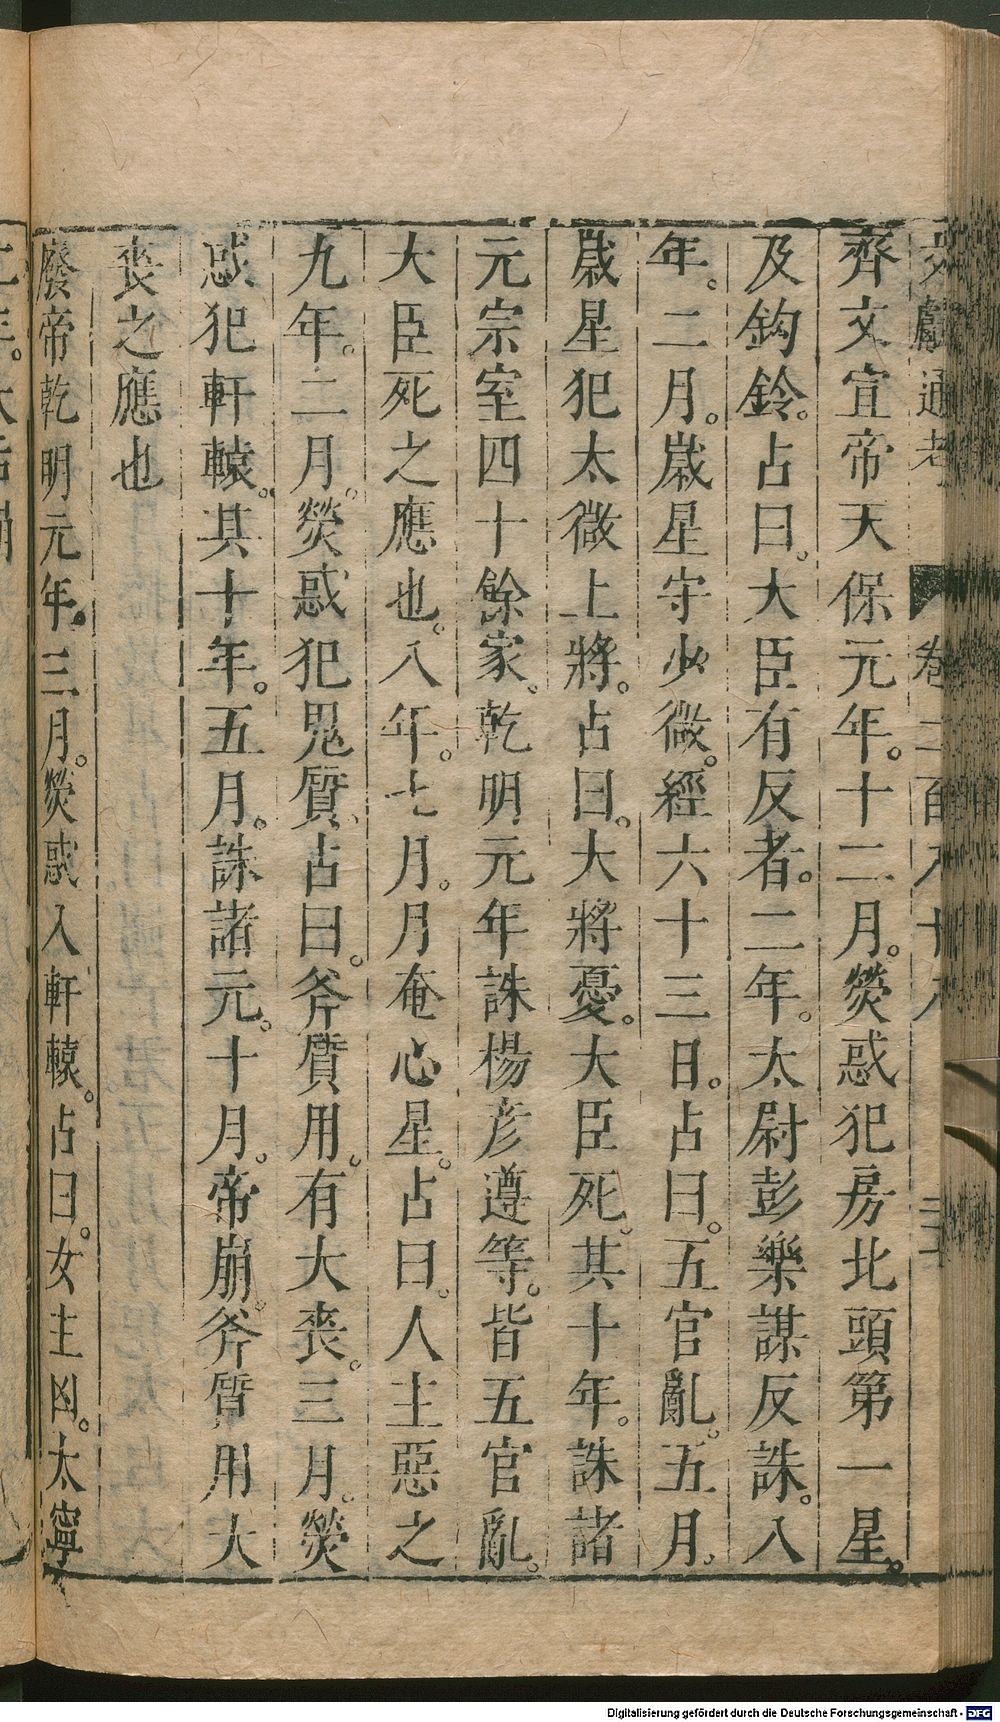 文獻通考 卷二百八十八
齊文宣帝天保元年。十二月。熒惑犯房北頭第一星。
及鈎鈴。占曰。大臣有反者。二年。太尉彭樂謀反誅。八
年。二月。歲星守少微。經六十三日。占曰。五官亂。五月。
歲星犯太微上將。占曰。大將憂。大臣死。其十年。誅諸
元宗室四十餘家、乾明元年誅楊彥遵等。皆五官亂。
大臣死之應也。八年。七月。月奄心星。占曰。人主惡之
九年。二月。熒惑犯鬼質、占曰。斧質用。有大喪。三月。熒
惑犯軒轅。其十年。五月。誅諸元。十月。帝崩。斧質用大
喪之應也
廢帝乾明元年。三月。熒惑入軒轅。占曰。女主凶。太寧
二年。太后崩
Digitalisierung gefördert durch die Deutsche Forschungsgemeinschaft - DFG